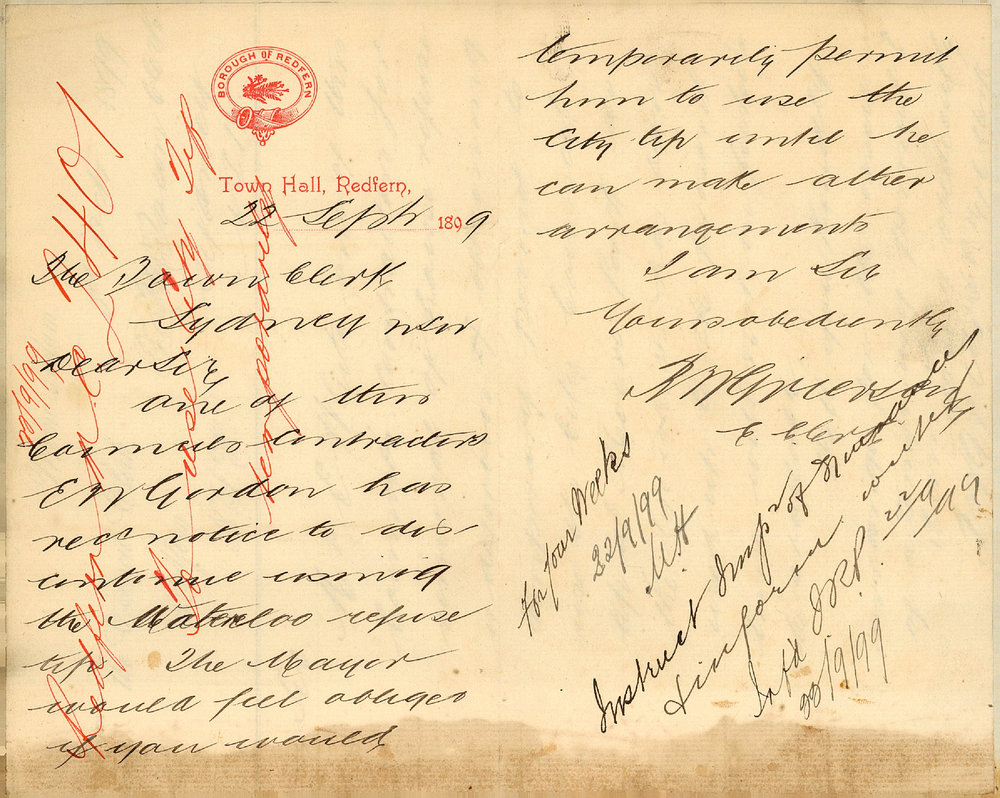 BOROUGH OF REDFERN
Town Hall, Redfern,
22 Sept 1899
The Town Clerk
Sydney NSW
Dear Sir
one of this
Councils Contractors
E W Gordon has
recd notice to dis
continue using
the Waterloo refuse
tip, The Mayor
would feel obliged
if you would
temporarily permit
him to use the
City tip until he
can make other
arrangements
I am Sir
Yours obediently
Grierson
E. Clerk
For four Weeks
22/9/99
Instruct Insp of Nuisances
& inform writer
JRP. 22/9/99
Infd
23/9/99
2401
23/9/99
Redfern
to use City Tip
temporarily